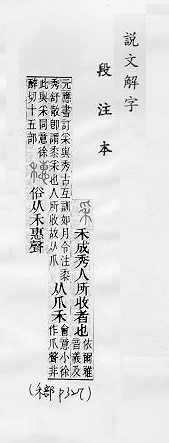 說文解字
段注本
采 禾成秀人所收者也 依爾雅
音義及
元應書訂采與秀古互訓如月令注黍
秀舒散即謂黍采也人所收故从爪
从爪禾 會意小徐
作爪聲非
此與采同意徐
醉切十五部
穗 俗从禾惠聲
(禾部 p327)